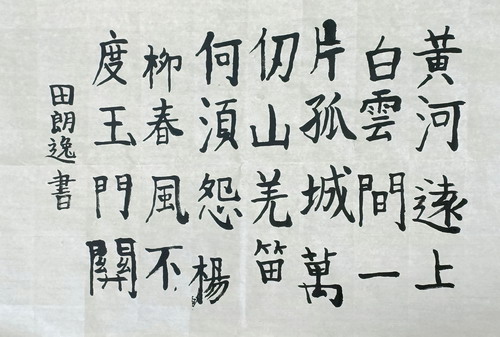 黄河遠上
白雲間一
片孤城萬
仞山羌笛
何須怨楊
柳春風不
度玉門關
田朗逸書